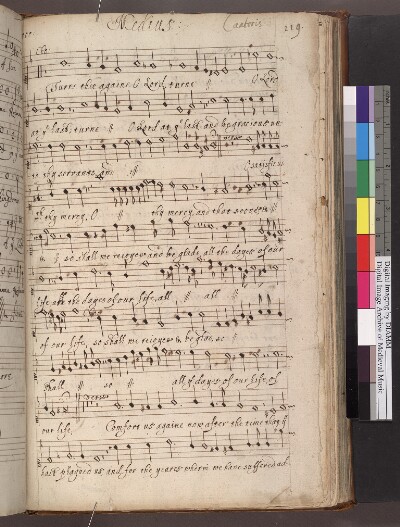 Medius: Cantoris: 219.
Turne thee againe O Lord, turne // O Lord
at ye last, turne // O Lord at ye last, and be gracious un
to thy servants, and // O satisfie us
thy mercy, O // thy mercy, and that soone, //
so shall we reioyce, and be glad, all the dayes of our
life, all the dayes of our life, all // all //
of our life, so shall we reioyce & be glad, so //
shall // so // all ye dayes of our life, of
our life, Comfort us againe now after the time that yu
hast plagued us, and for the yeares wherin we have suffered ad
Digital Imaging by DIAMM
Digital Image Archive of Medieval Music